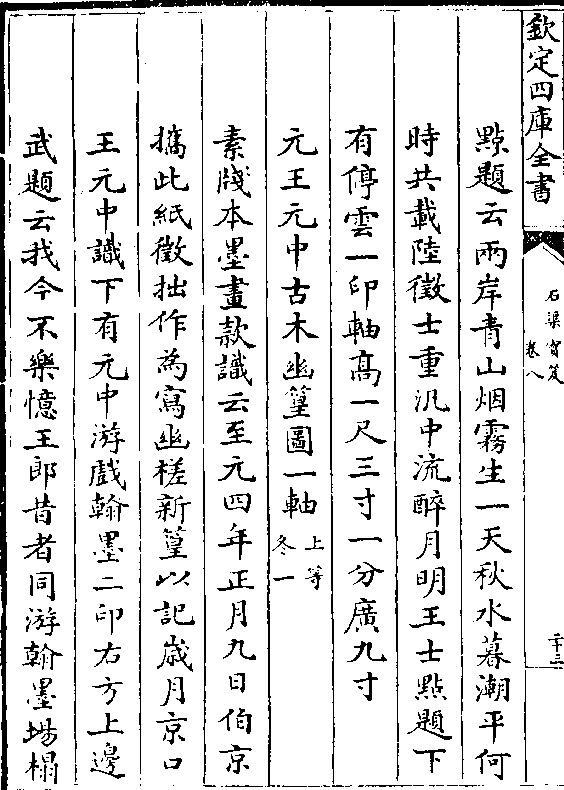 欽定四庫全書
石渠寶笈
卷八
二十三
點題云兩岸青山烟霧生一天秋水暮潮平何
時共載陸徵士重汎中流醉月明王士點題下
有停雲一印軸髙一尺三寸一分廣九寸
元王元中古木幽篁圖一軸上等冬一
素牋本墨畫款識云至元四年正月九日伯京
攜此紙徵拙作為寫幽槎新篁以記歳月京口
王元中識下有元中游戲翰墨二印右方上邊
武題云我今不樂憶王郎昔者同游翰墨場榻